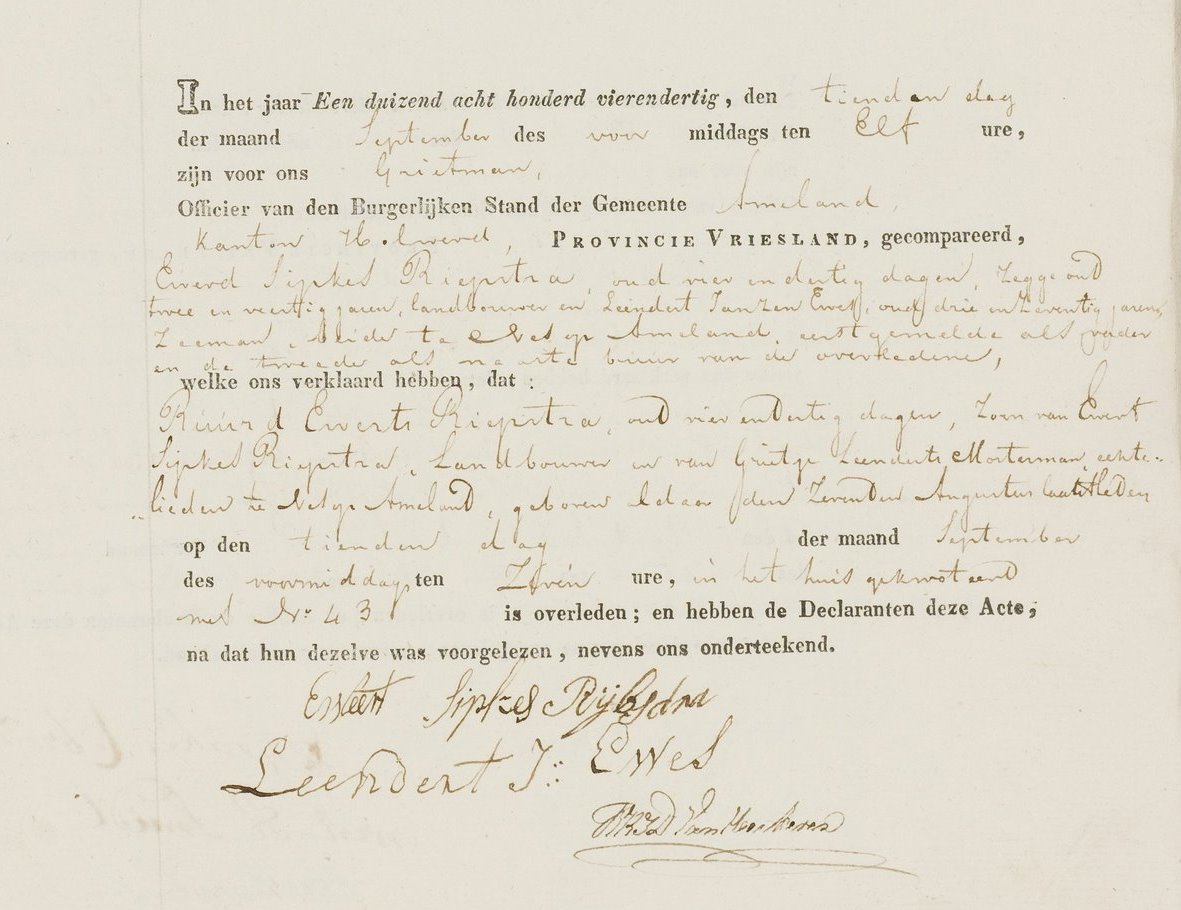 In het jaar Een duizend acht honderd vierendertig, den tienden dag
der maand September des voor middags ten Elf ure,
zijn voor ons Grietman,
Officier van den Burgerlijken Stand der Gemeente Ameland,
Kanton Holwerd, PROVINCIE VRIESLAND, gecompareerd,
Ewerd Sipkes Riepstra, oud vier en dertig dagen, zegge oud
twee en veertig jaren, landbouwer en Leendert Janzen Ewes, oud drie en zeventig jaren,
Zeeman, beide te Nes op Ameland, eerstgemelde als vader
en de tweede als naaste buur van de overledene,
welke ons verklaard hebben, dat :
Ruurd Ewerts Riepstra, oud vier en dertig dagen, Zoon van Ewert
Sipkes Riepstra, Landbouwer en van Grietje Leenderts Mosterman, echte-
lieden te Nes op Ameland, geboren aldaar den Zevenden Augustus laatstleden
op den tienden dag der maand September
des voormiddags ten Zeven ure, in het huis gekwoteerd
met No. 43 is overleden; en hebben de Declaranten deze Acte,
na dat hun dezelve was voorgelezen, nevens ons onderteekend.
Ewert Sipkes Rijbsdra
Leendert J: Ewes
Van Heeckeren